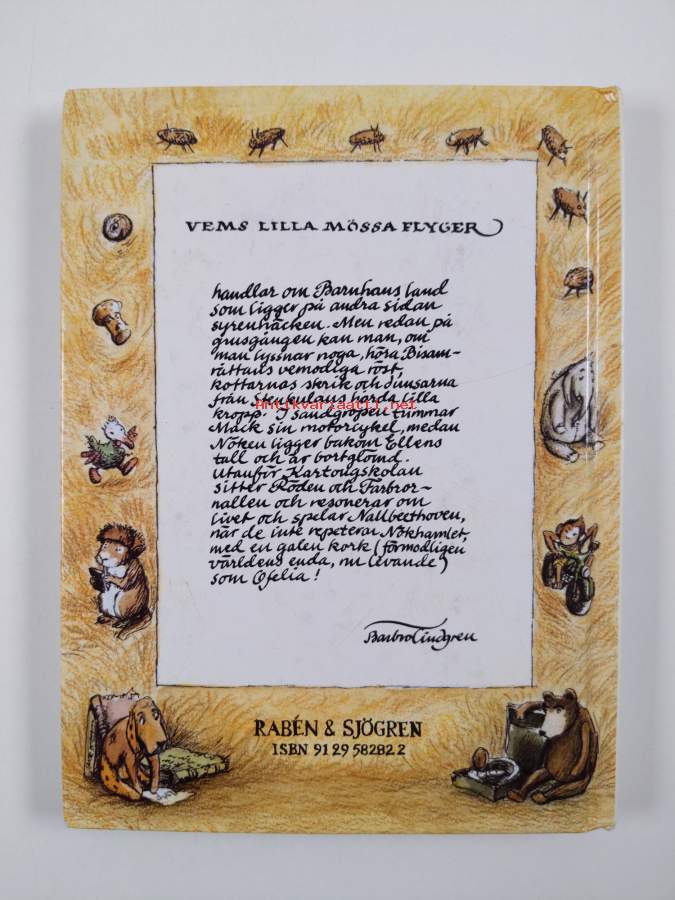 VEMS LILLA MÖSSA FLYGER
handlar om Barnhans land
som ligger på andra sidan
syrenhäcken. Men redan på
grusgången kan man, om
man lyssnar noga, höra Bisam-
råttans vemodiga röst,
kottarnas skrik och dunsarna
från Skunkulans hårda lilla
Antikvariaatti.net
kropp. I Sandgropen tummar
Mack sin motorcykel, medan
Nöken ligger bakom Ellens
tall och är bortglömd.
Utanför Kartongskolan
sitter Röden och Farbror-
nallen och resonerar om
livet och spelar Nallbeethoven,
när de inte repeterar Nökhamlet,
med en galen kork (förmodligen
världens enda, nu levande)
som Ofelia!
Barbro Lindgren
RABÉN & SJÖGREN
ISBN 91 29 58282 2